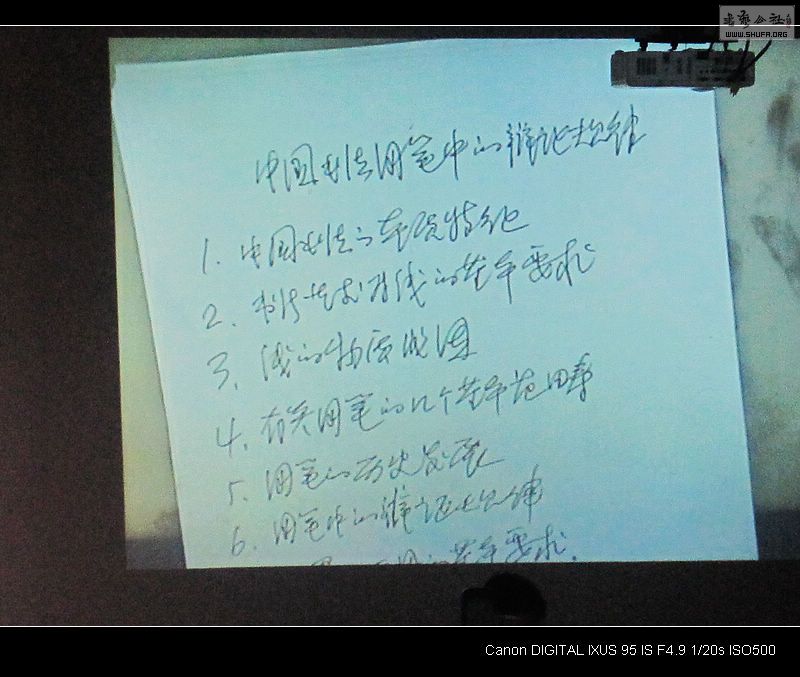 书艺公社
WWW.SHUFA.ORG
中国书法用笔中的辩证规律
1. 中国书法的表现特征
2. 书法艺术对线的基本要求
3. 线的物质
4. 有关用笔的几个基本范畴
5. 用笔的历史发展
6. 用笔中的辩证规律
的基本要求.
Canon DIGITAL IXUS 95 IS F4.9 1/20s ISO500